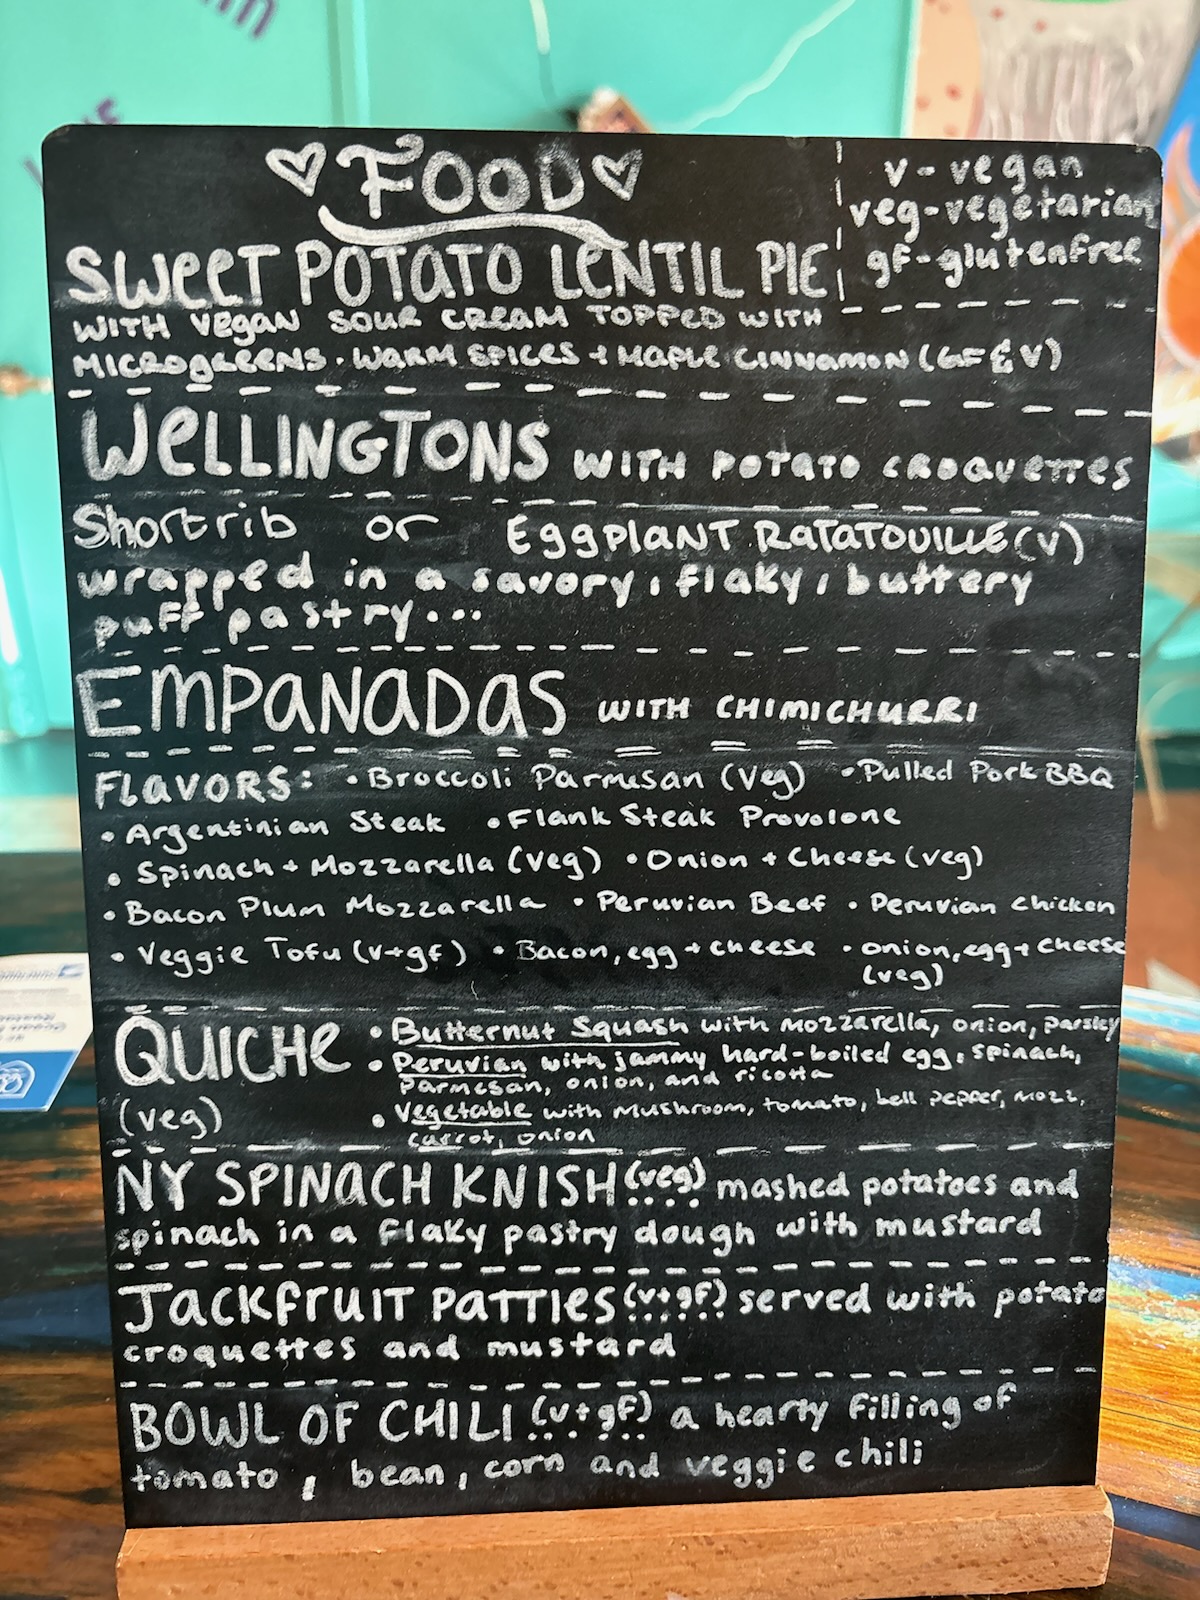 FOOD
v - vegan
veg-vegetarian
gf-glutenfree
SWEET POTATO LENTIL PIE
WITH VEGAN SOUR CREAM TOPPED WITH
MICROGREENS · WARM SPICES + MAPLE CINNAMON (GF & V)
WELLINGTONS WITH POTATO CROQUETTES
Shortrib or EGGPLANT RATATOUILLE (V)
wrapped in a savory, flaky, buttery
puff pastry...
EMPANADAS WITH CHIMICHURRI
FLAVORS: • Broccoli Parmesan (Veg) • Pulled Pork BBQ
• Argentinian Steak • Flank Steak Provolone
• Spinach + Mozzarella (Veg) • Onion + Cheese (veg)
• Bacon Plum Mozzarella • Peruvian Beef • Peruvian Chicken
• Veggie Tofu (v+gf) • Bacon, egg + cheese • onion, egg + cheese
(veg)
QUICHE • Butternut Squash with mozzarella, onion, parsley
• Peruvian with jammy hard-boiled egg, spinach,
parmesan, onion, and ricotta
(veg) • Vegetable with mushroom, tomato, bell pepper, mozz,
carrot, onion
NY SPINACH KNISH (veg) mashed potatoes and
spinach in a flaky pastry dough with mustard
JACKFRUIT PATTIES (v+gf) served with potato
croquettes and mustard
BOWL OF CHILI (v+gf) a hearty filling of
tomato, bean, corn and veggie chili